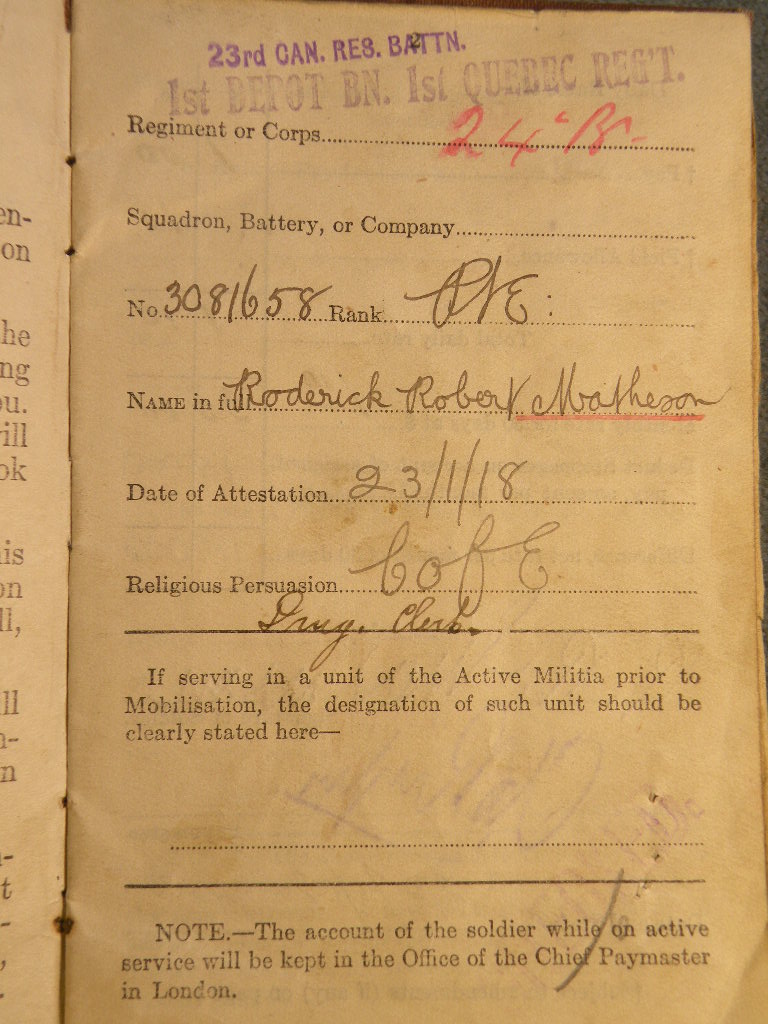 23rd CAN. RES. BATTN.
1st DEPOT BN. 1st QUEBEC REG'T.
Regiment or Corps
Squadron, Battery, or Company
No. 3081658 Rank PTE:
NAME in full Roderick Robert Matheson
Date of Attestation 23/1/18
Religious Persuasion C of E
Drug. Clerk.
If serving in a unit of the Active Militia prior to
Mobilisation, the designation of such unit should be
clearly stated here—
NOTE.—The account of the soldier while on active
service will be kept in the Office of the Chief Paymaster
in London.